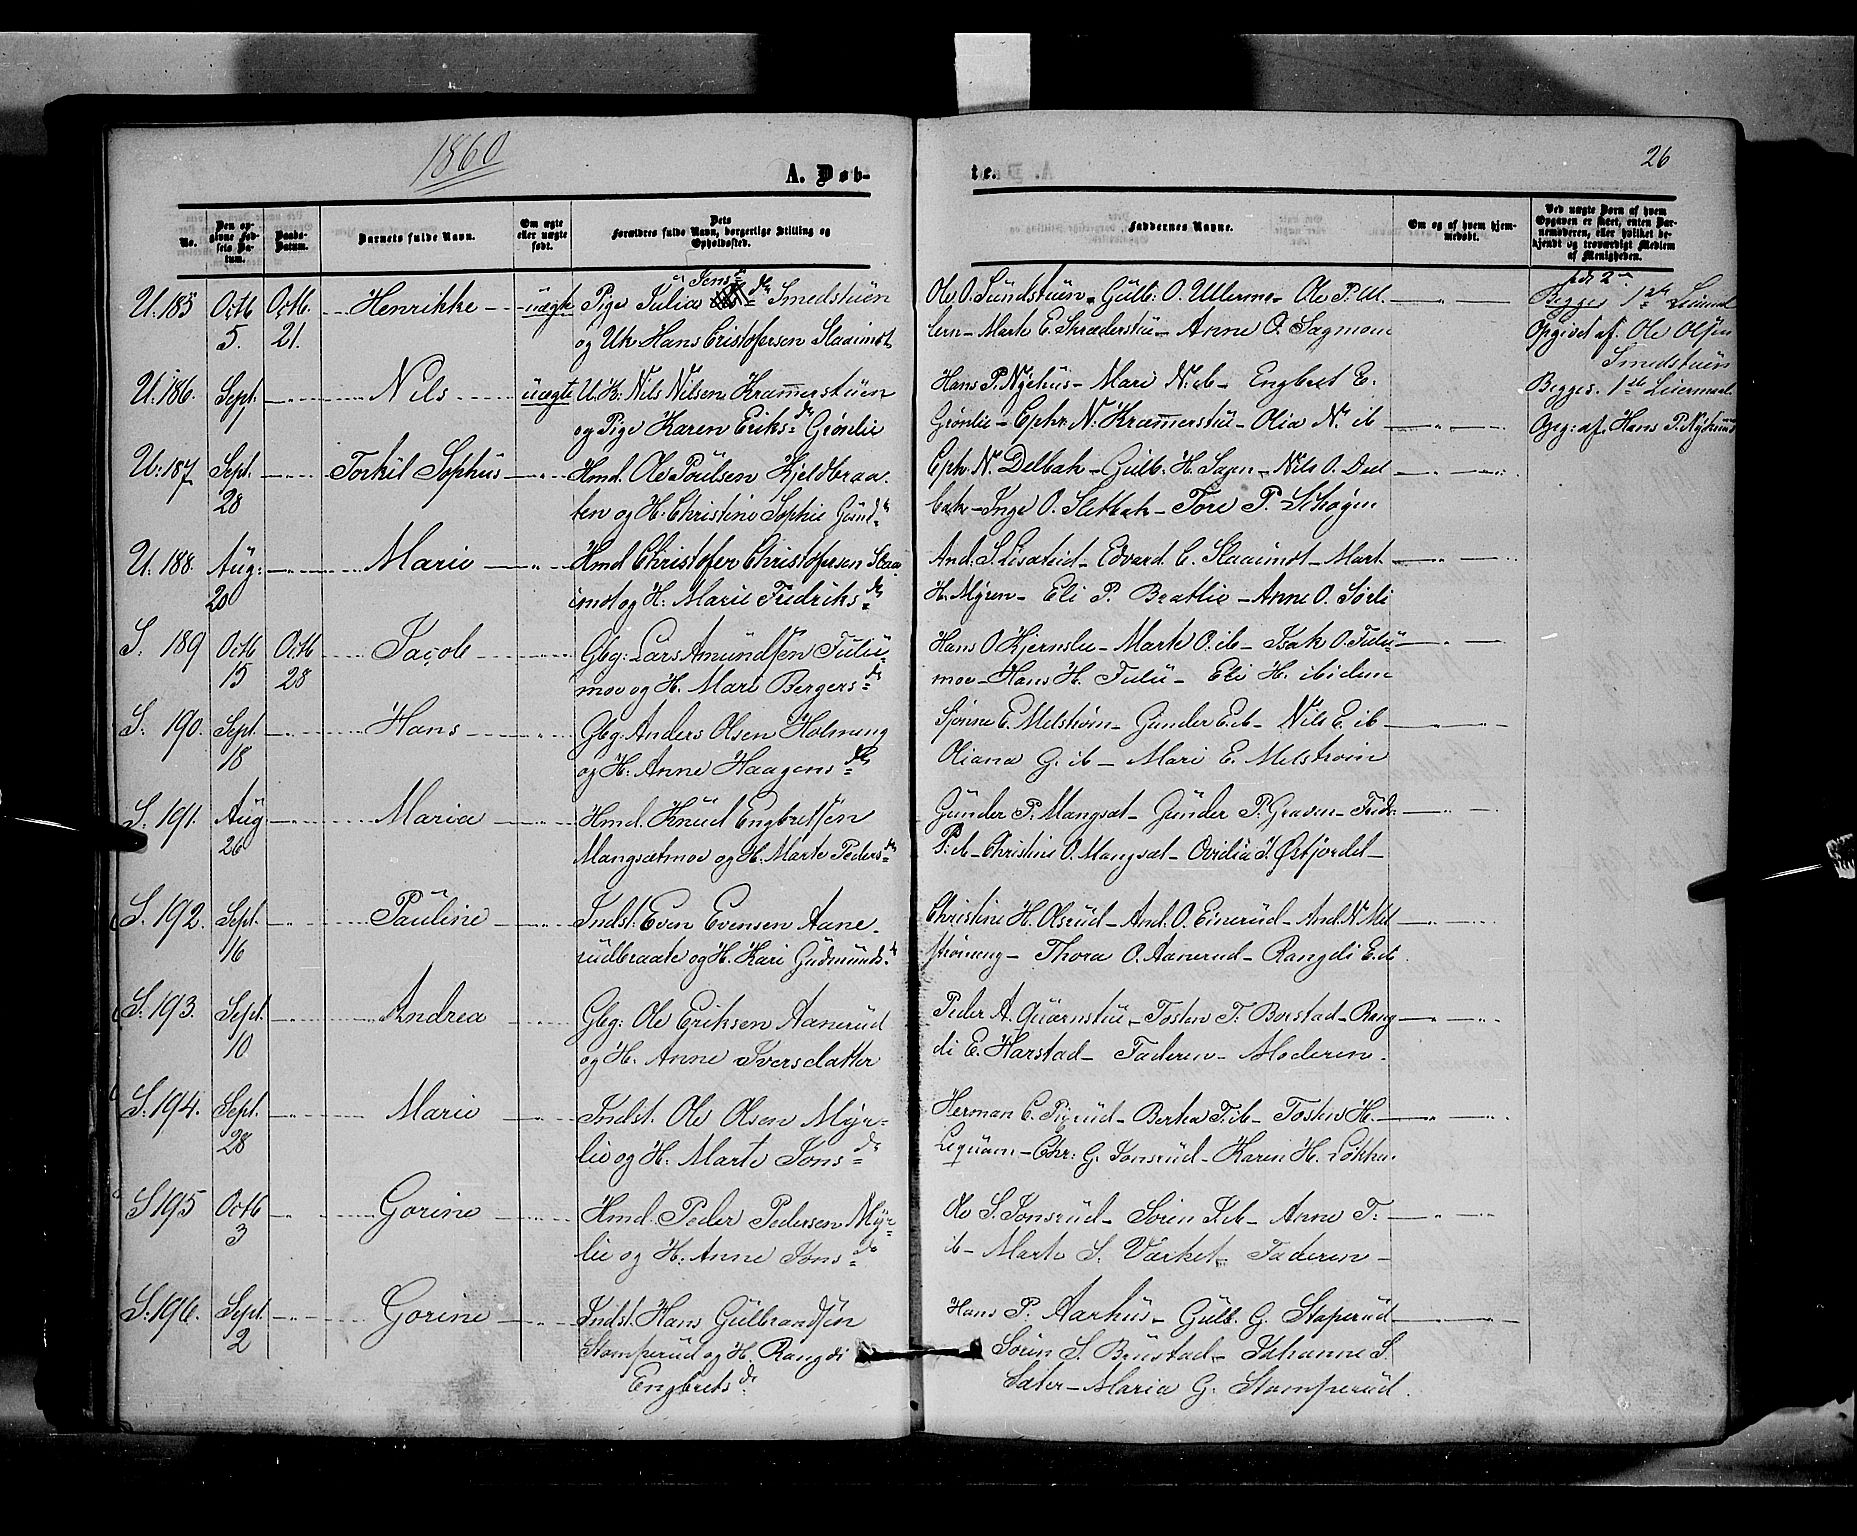 1860
A. Døb-
te.
26
No.
Den opgivne Fødsels Datum.
Daabs-Datum.
Barnets fulde Navn.
Om ægte eller uægte født.
Dets Forældres fulde Navn, borgerlige Stilling og Opholdssted.
Faddernes Navne.
Om og af hvem hjemmedøbt.
Ved uægte Børn af hvem Opgaven er skeet, enten Barnemoderen, eller hvilket bekjendt og troværdigt Medlem af Menigheden.
U. 185 Octb 5. Octb. 21. Henrikke uægte Pige Julia Jens dr Smedstüen
og Uk Hans Cristofersen Slaaimot
Ole O. Sündstüen - Gülb: O. Ullermo - Ole P. Ul
lern - Marte E. Skræderstü - Anne O. Sagmoen
Begges 1ste Leierm
Opgivet af. Ole Olsen
Smedstüen
U. 186. Sept. 1 Nils uægte U. K: Nils Nilsen Kramerstüen
og Pige Karen Eriks dr Grønlie
Hans P. Nyehüs - Mari N: ib - Engbret E.
Grønlie - Cphr. N: Kramerstü - Olia N. ib
Begges. 1ste Leiermaal
Opg: af. Hans P. Nyhuus
U. 187 Sept. 28 Torkil Sophüs Hmd. Ole Poülsen Kjeldbraa
ten og H. Christine Sophie Günd
Cph. N. Delbak - Gülb. H. Sagn - Nils O. Del
bak - Inge O. Sletbak - Tore P. Skøgen
U. 188. Aug: 20 Marie Hmd Christofer Christofersen Slaa
imot og H. Marie Fredriks dr
And. S. - Edvard C. Slaaimot - Mart.
H. Myren - Eli P. Bratlie - Anne O. Sørli
S. 189 Octb 15 Octb 28 Jacob Gbg: Lars Amündsen Fülü
moe og H. Mari Bergers dr
Hans O. Kjernslie - Marte O. ib - Isak O. Fülü
moe - Hans H. Fülü - Eli H. ibidem
S. 190. Sept. 18 Hans Gbg: Anders Olsen Holmeng
og H: Anne Haagens dr
E. Melstrøm - Günder E. ib - Nils E. ib
Oliana G. ib - Mari E. Melstrøm
S. 191. Aug 26 Maria Hmd. Knüd Engbretsen
Mangsætmoe og H. Marte Peders dr
Günder P. Mangsæt - Günder P. Graven - Fredr.
P. ib - Christine O. Mangsæt - Ovidia J. Østjordet
S. 192. Sept. 16 Pauline Indst. Even Evensen Aane
rüdbraate og H. Kari Güdmünds dr
Christine H. Olsrüd - And. O. Einerüd - And. N. Mel
strømeng - Thora O. Aanerud - Rangdi E. ib
S. 193. Sept. 10 Andrea Gbg: Ole Eriksen Aanerüd
og H. Anne Iversdatter
Peder A. Quærnstüe - Tosten T. Borstad - Rang
di E. Harstad - Faderen - Moderen.
S. 194. Sept. 28 Marie Indst. Ole Olsen Myr
lie og H. Marte Jons dr
Herman C. - Bertha T. ib - Tosten H.
Lequam - Chr: G. Jonsrüd - Karen H. Løkken
S 195 Octb 3 Gorine Hmd. Peder Pedersen Myr
lie og H. Anne Jons dr
Ole S. Jonsrüd - Søren J. ib - Anne T.
ib - Marte S. Værket - Faderen
S. 196. Sept. 2 Gorine Indst. Hans Gülbrandsen
Stomperüd og H. Rangdi
Engbrets dr
Hans P. Aarhüs - Gülb. G. Staperüd
Søren S. Brüstad - Johanne S.
Sæter - Maria G. Stomperüd.